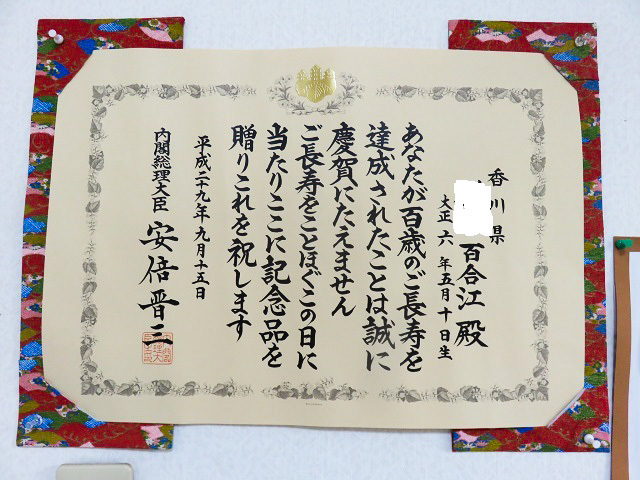 香川県
百合江殿
大正六年五月十日生
あなたが百歳のご長寿を
達成されたことは誠に
慶賀にたえません
ご長寿をことほぐこの日に
当たりここに記念品を
贈りこれを祝します
平成二十九年九月十五日
内閣総理大臣 安倍晋三